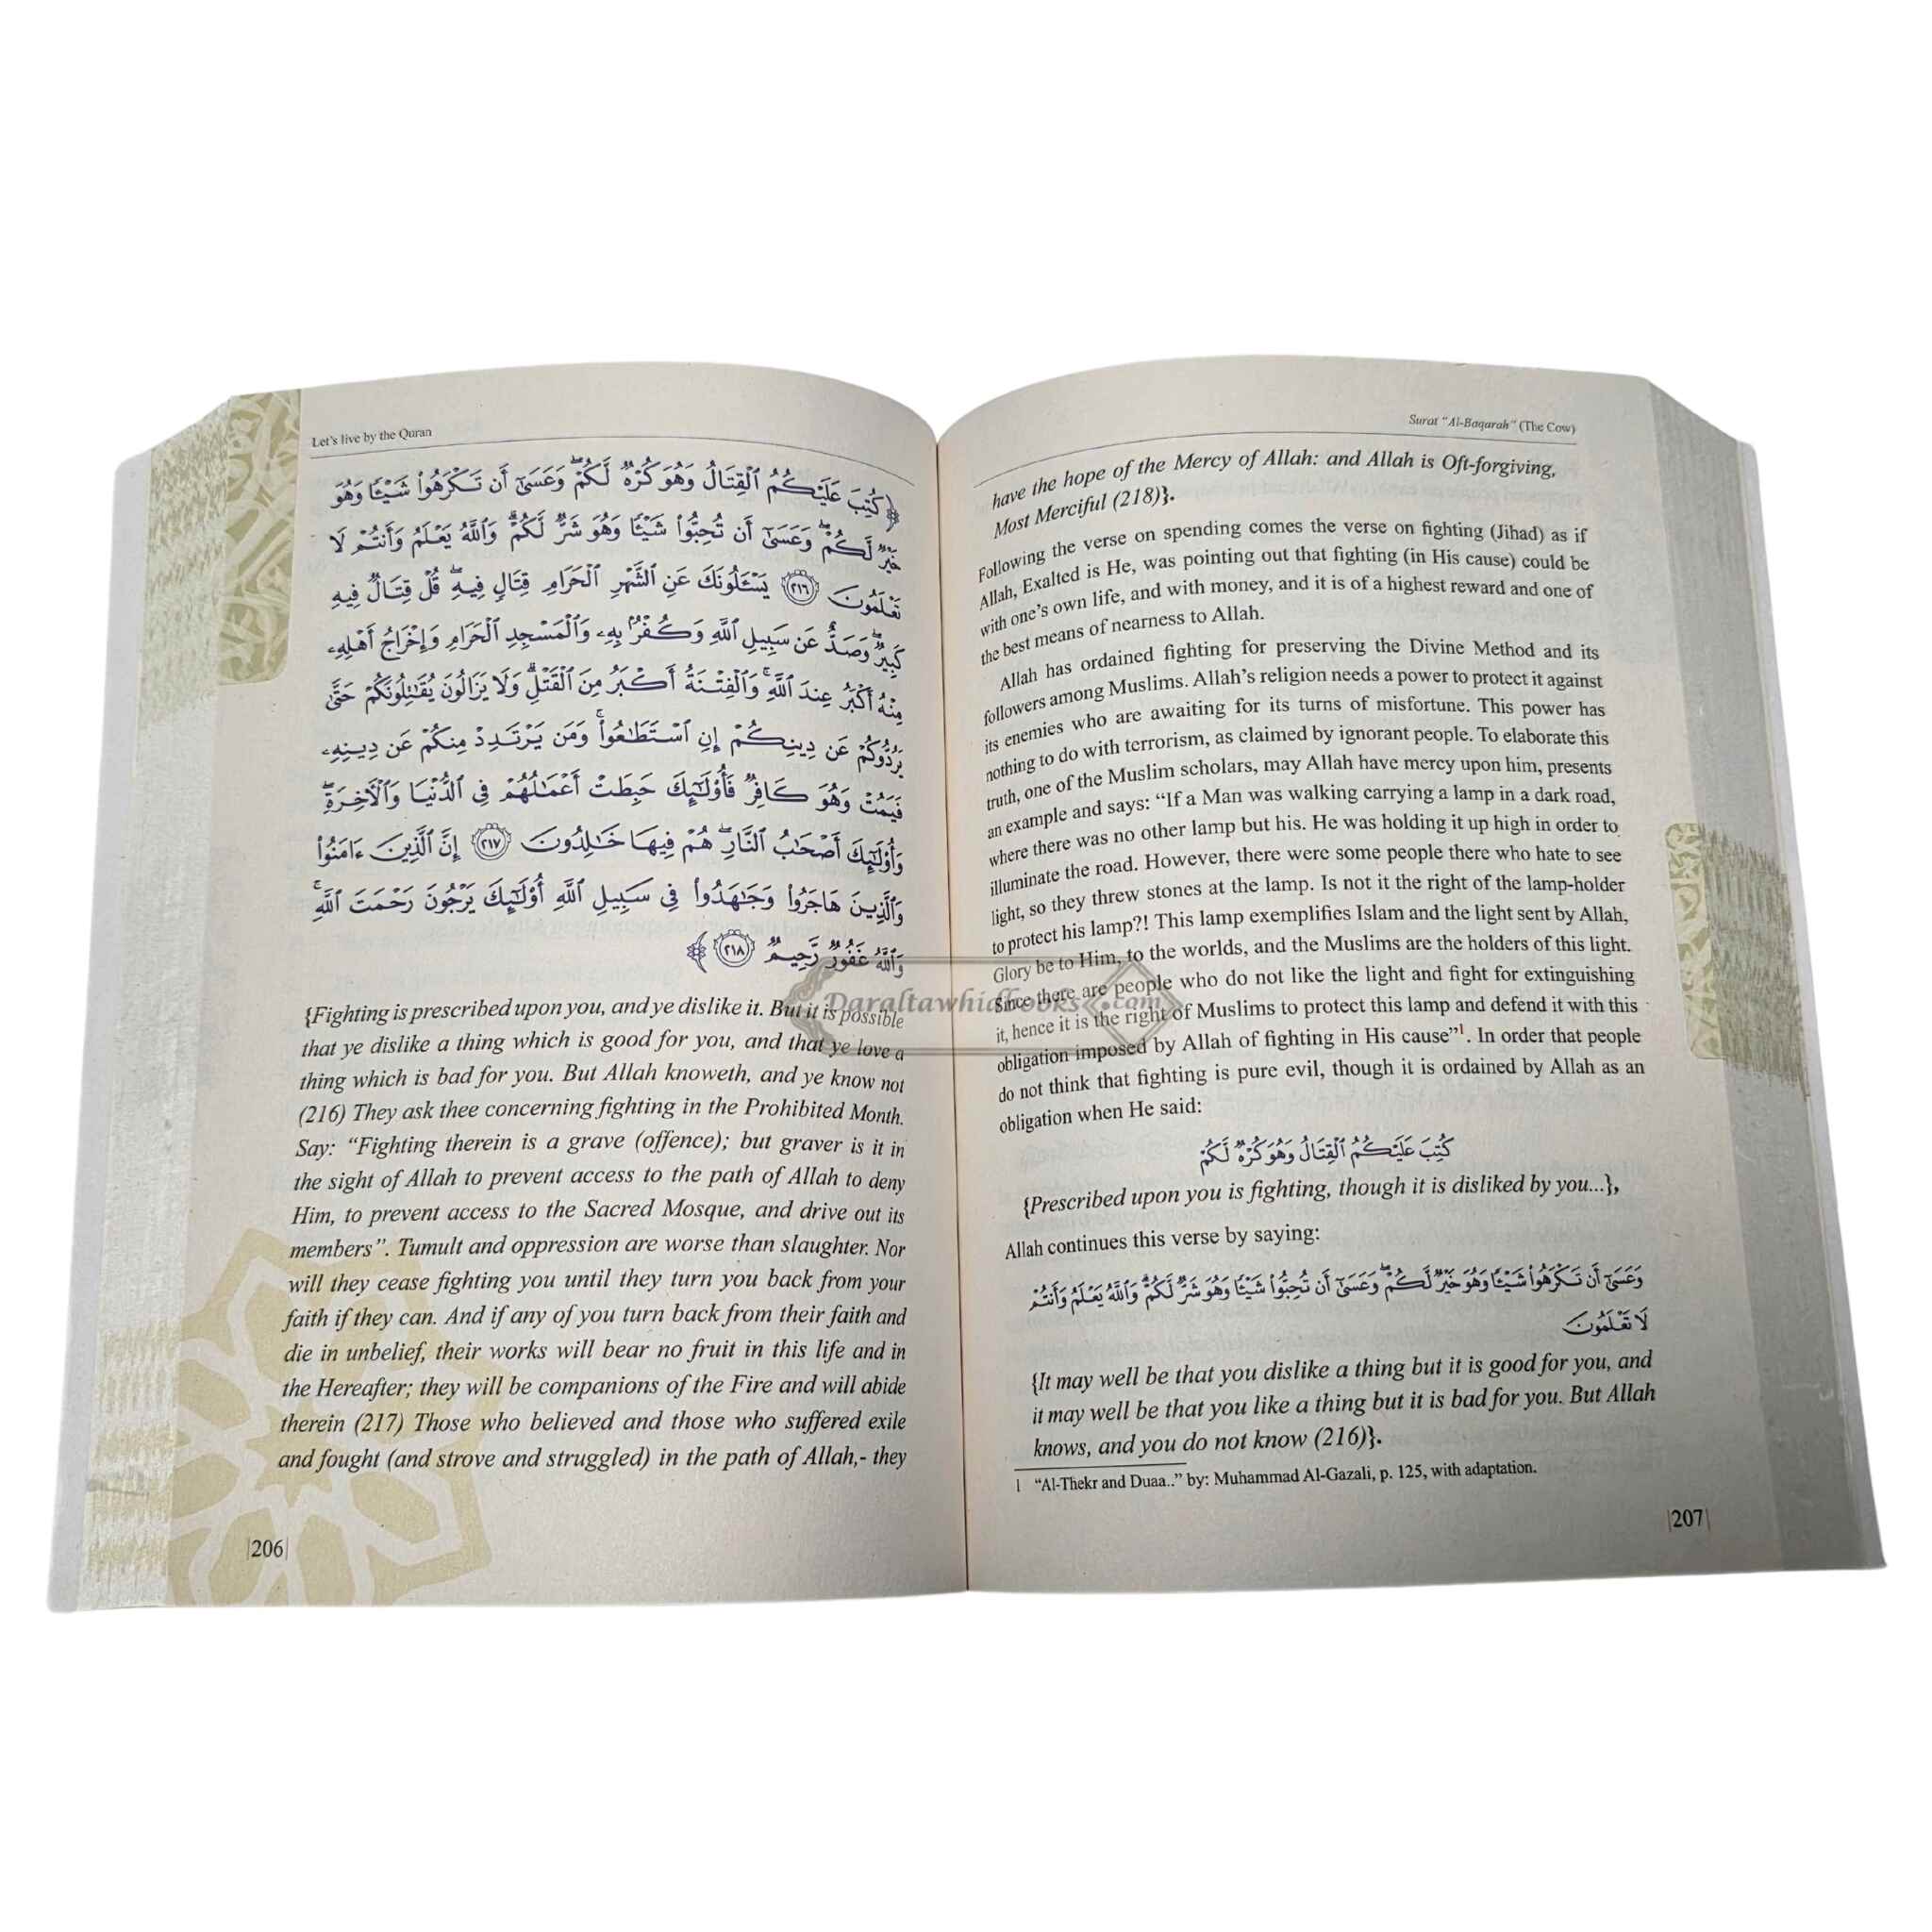 Let's live by the Quran
﴿كُتِبَ عَلَيْكُمُ ٱلْقِتَالُ وَهُوَ كُرْهٌ لَّكُمْ ۖ وَعَسَىٰٓ أَن تَكْرَهُوا۟ شَيْـًٔا وَهُوَ
خَيْرٌ لَّكُمْ ۖ وَعَسَىٰٓ أَن تُحِبُّوا۟ شَيْـًٔا وَهُوَ شَرٌّ لَّكُمْ ۗ وَٱللَّهُ يَعْلَمُ وَأَنتُمْ لَا
تَعْلَمُونَ ٢١٦ يَسْـَٔلُونَكَ عَنِ ٱلشَّهْرِ ٱلْحَرَامِ قِتَالٍ فِيهِ ۖ قُلْ قِتَالٌ فِيهِ
كَبِيرٌ ۖ وَصَدٌّ عَن سَبِيلِ ٱللَّهِ وَكُفْرٌۢ بِهِۦ وَٱلْمَسْجِدِ ٱلْحَرَامِ وَإِخْرَاجُ أَهْلِهِۦ
مِنْهُ أَكْبَرُ عِندَ ٱللَّهِ ۚ وَٱلْفِتْنَةُ أَكْبَرُ مِنَ ٱلْقَتْلِ ۗ وَلَا يَزَالُونَ يُقَـٰتِلُونَكُمْ حَتَّىٰ
يَرُدُّوكُمْ عَن دِينِكُمْ إِنِ ٱسْتَطَـٰعُوا۟ ۚ وَمَن يَرْتَدِدْ مِنكُمْ عَن دِينِهِۦ
فَيَمُتْ وَهُوَ كَافِرٌ فَأُو۟لَـٰٓئِكَ حَبِطَتْ أَعْمَـٰلُهُمْ فِى ٱلدُّنْيَا وَٱلْـَٔاخِرَةِ ۖ
وَأُو۟لَـٰٓئِكَ أَصْحَـٰبُ ٱلنَّارِ ۖ هُمْ فِيهَا خَـٰلِدُونَ ٢١٧ إِنَّ ٱلَّذِينَ ءَامَنُوا۟
وَٱلَّذِينَ هَاجَرُوا۟ وَجَـٰهَدُوا۟ فِى سَبِيلِ ٱللَّهِ أُو۟لَـٰٓئِكَ يَرْجُونَ رَحْمَتَ ٱللَّهِ ۚ
وَٱللَّهُ غَفُورٌ رَّحِيمٌ ٢١٨﴾
{Fighting is prescribed upon you, and ye dislike it. But it is possible
that ye dislike a thing which is good for you, and that ye love a
thing which is bad for you. But Allah knoweth, and ye know not
(216) They ask thee concerning fighting in the Prohibited Month.
Say: “Fighting therein is a grave (offence); but graver is it in
the sight of Allah to prevent access to the path of Allah to deny
Him, to prevent access to the Sacred Mosque, and drive out its
members”. Tumult and oppression are worse than slaughter. Nor
will they cease fighting you until they turn you back from your
faith if they can. And if any of you turn back from their faith and
die in unbelief, their works will bear no fruit in this life and in
the Hereafter; they will be companions of the Fire and will abide
therein (217) Those who believed and those who suffered exile
and fought (and strove and struggled) in the path of Allah,- they
|206|
Surat “Al-Baqarah” (The Cow)
have the hope of the Mercy of Allah: and Allah is Oft-forgiving,
Most Merciful (218)}.
Following the verse on spending comes the verse on fighting (Jihad) as if
Allah, Exalted is He, was pointing out that fighting (in His cause) could be
with one’s own life, and with money, and it is of a highest reward and one of
the best means of nearness to Allah.
Allah has ordained fighting for preserving the Divine Method and its
followers among Muslims. Allah’s religion needs a power to protect it against
its enemies who are awaiting for its turns of misfortune. This power has
nothing to do with terrorism, as claimed by ignorant people. To elaborate this
truth, one of the Muslim scholars, may Allah have mercy upon him, presents
an example and says: “If a Man was walking carrying a lamp in a dark road,
where there was no other lamp but his. He was holding it up high in order to
illuminate the road. However, there were some people there who hate to see
light, so they threw stones at the lamp. Is not it the right of the lamp-holder
to protect his lamp?! This lamp exemplifies Islam and the light sent by Allah,
Glory be to Him, to the worlds, and the Muslims are the holders of this light.
Since there are people who do not like the light and fight for extinguishing
it, hence it is the right of Muslims to protect this lamp and defend it with this
obligation imposed by Allah of fighting in His cause”1. In order that people
do not think that fighting is pure evil, though it is ordained by Allah as an
obligation when He said:
كُتِبَ عَلَيْكُمُ ٱلْقِتَالُ وَهُوَ كُرْهٌ لَّكُمْ
{Prescribed upon you is fighting, though it is disliked by you...},
Allah continues this verse by saying:
وَعَسَىٰٓ أَن تَكْرَهُوا۟ شَيْـًٔا وَهُوَ خَيْرٌ لَّكُمْ ۖ وَعَسَىٰٓ أَن تُحِبُّوا۟ شَيْـًٔا وَهُوَ شَرٌّ لَّكُمْ ۗ وَٱللَّهُ يَعْلَمُ وَأَنتُمْ
لَا تَعْلَمُونَ
{It may well be that you dislike a thing but it is good for you, and
it may well be that you like a thing but it is bad for you. But Allah
knows, and you do not know (216)}.
1 “Al-Thekr and Duaa..” by: Muhammad Al-Gazali, p. 125, with adaptation.
|207|
Daraltawhidbooks.com